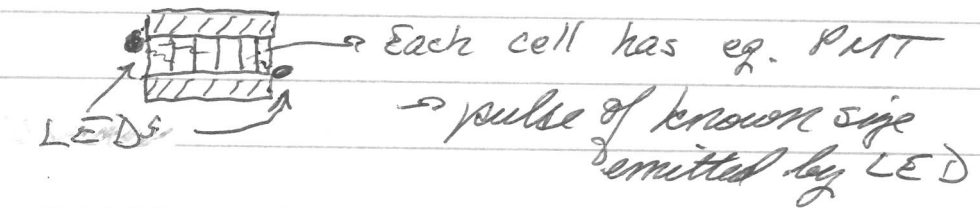 → Each cell has eg. PMT
→ pulse of known size
emitted by LED
LEDs